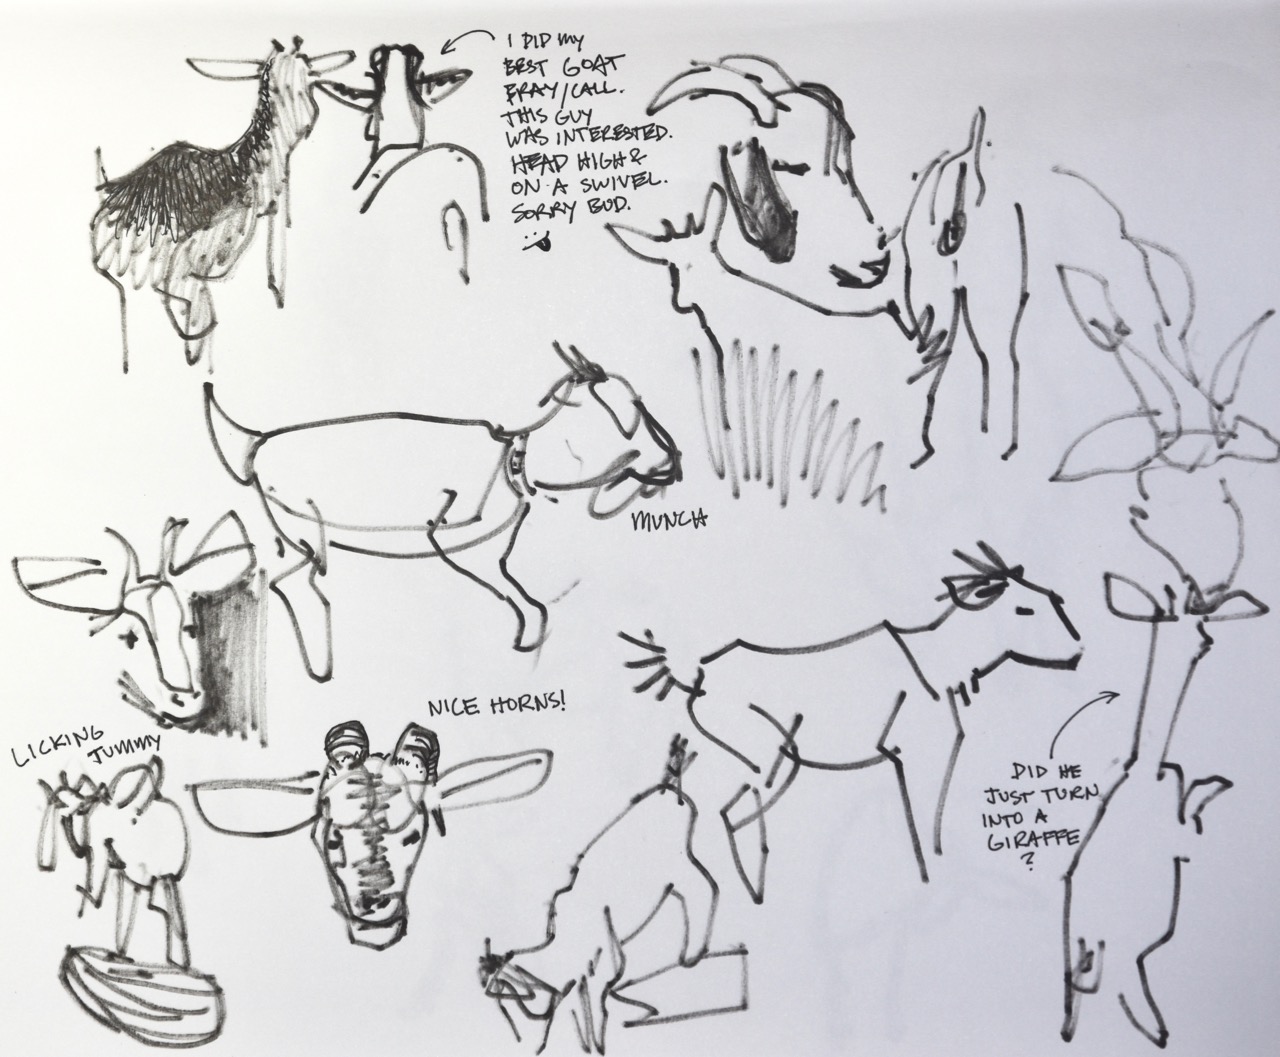 I DID MY
BEST GOAT
BRAY/CALL.
THIS GUY
WAS INTERESTED.
HEAD HIGH &
ON A SWIVEL.
SORRY BUD.
MUNCH
NICE HORNS!
LICKING
TUMMY
DID HE
JUST TURN
INTO A
GIRAFFE
?